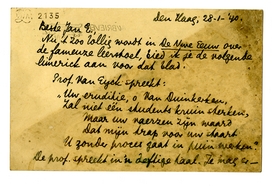 2135
Den Haag, 28-1-'40.
Beste Jan E.
Nu 't zoo lollig wordt in De Nwe Eeuw over
de fameuze leerstoel, bied ik je de volgende
limerick aan voor dat blad.
Prof. van Eyck spreekt:
"Uw eruditie, o Van Duinkerken,
Zal niet één studentskruin sterken,
Maar uw vaerzen zijn waard
Dat mijn trap voor uw staart
U zonder proces gaat in puin werken."
De prof. spreekt in deftige taal. Je mag er